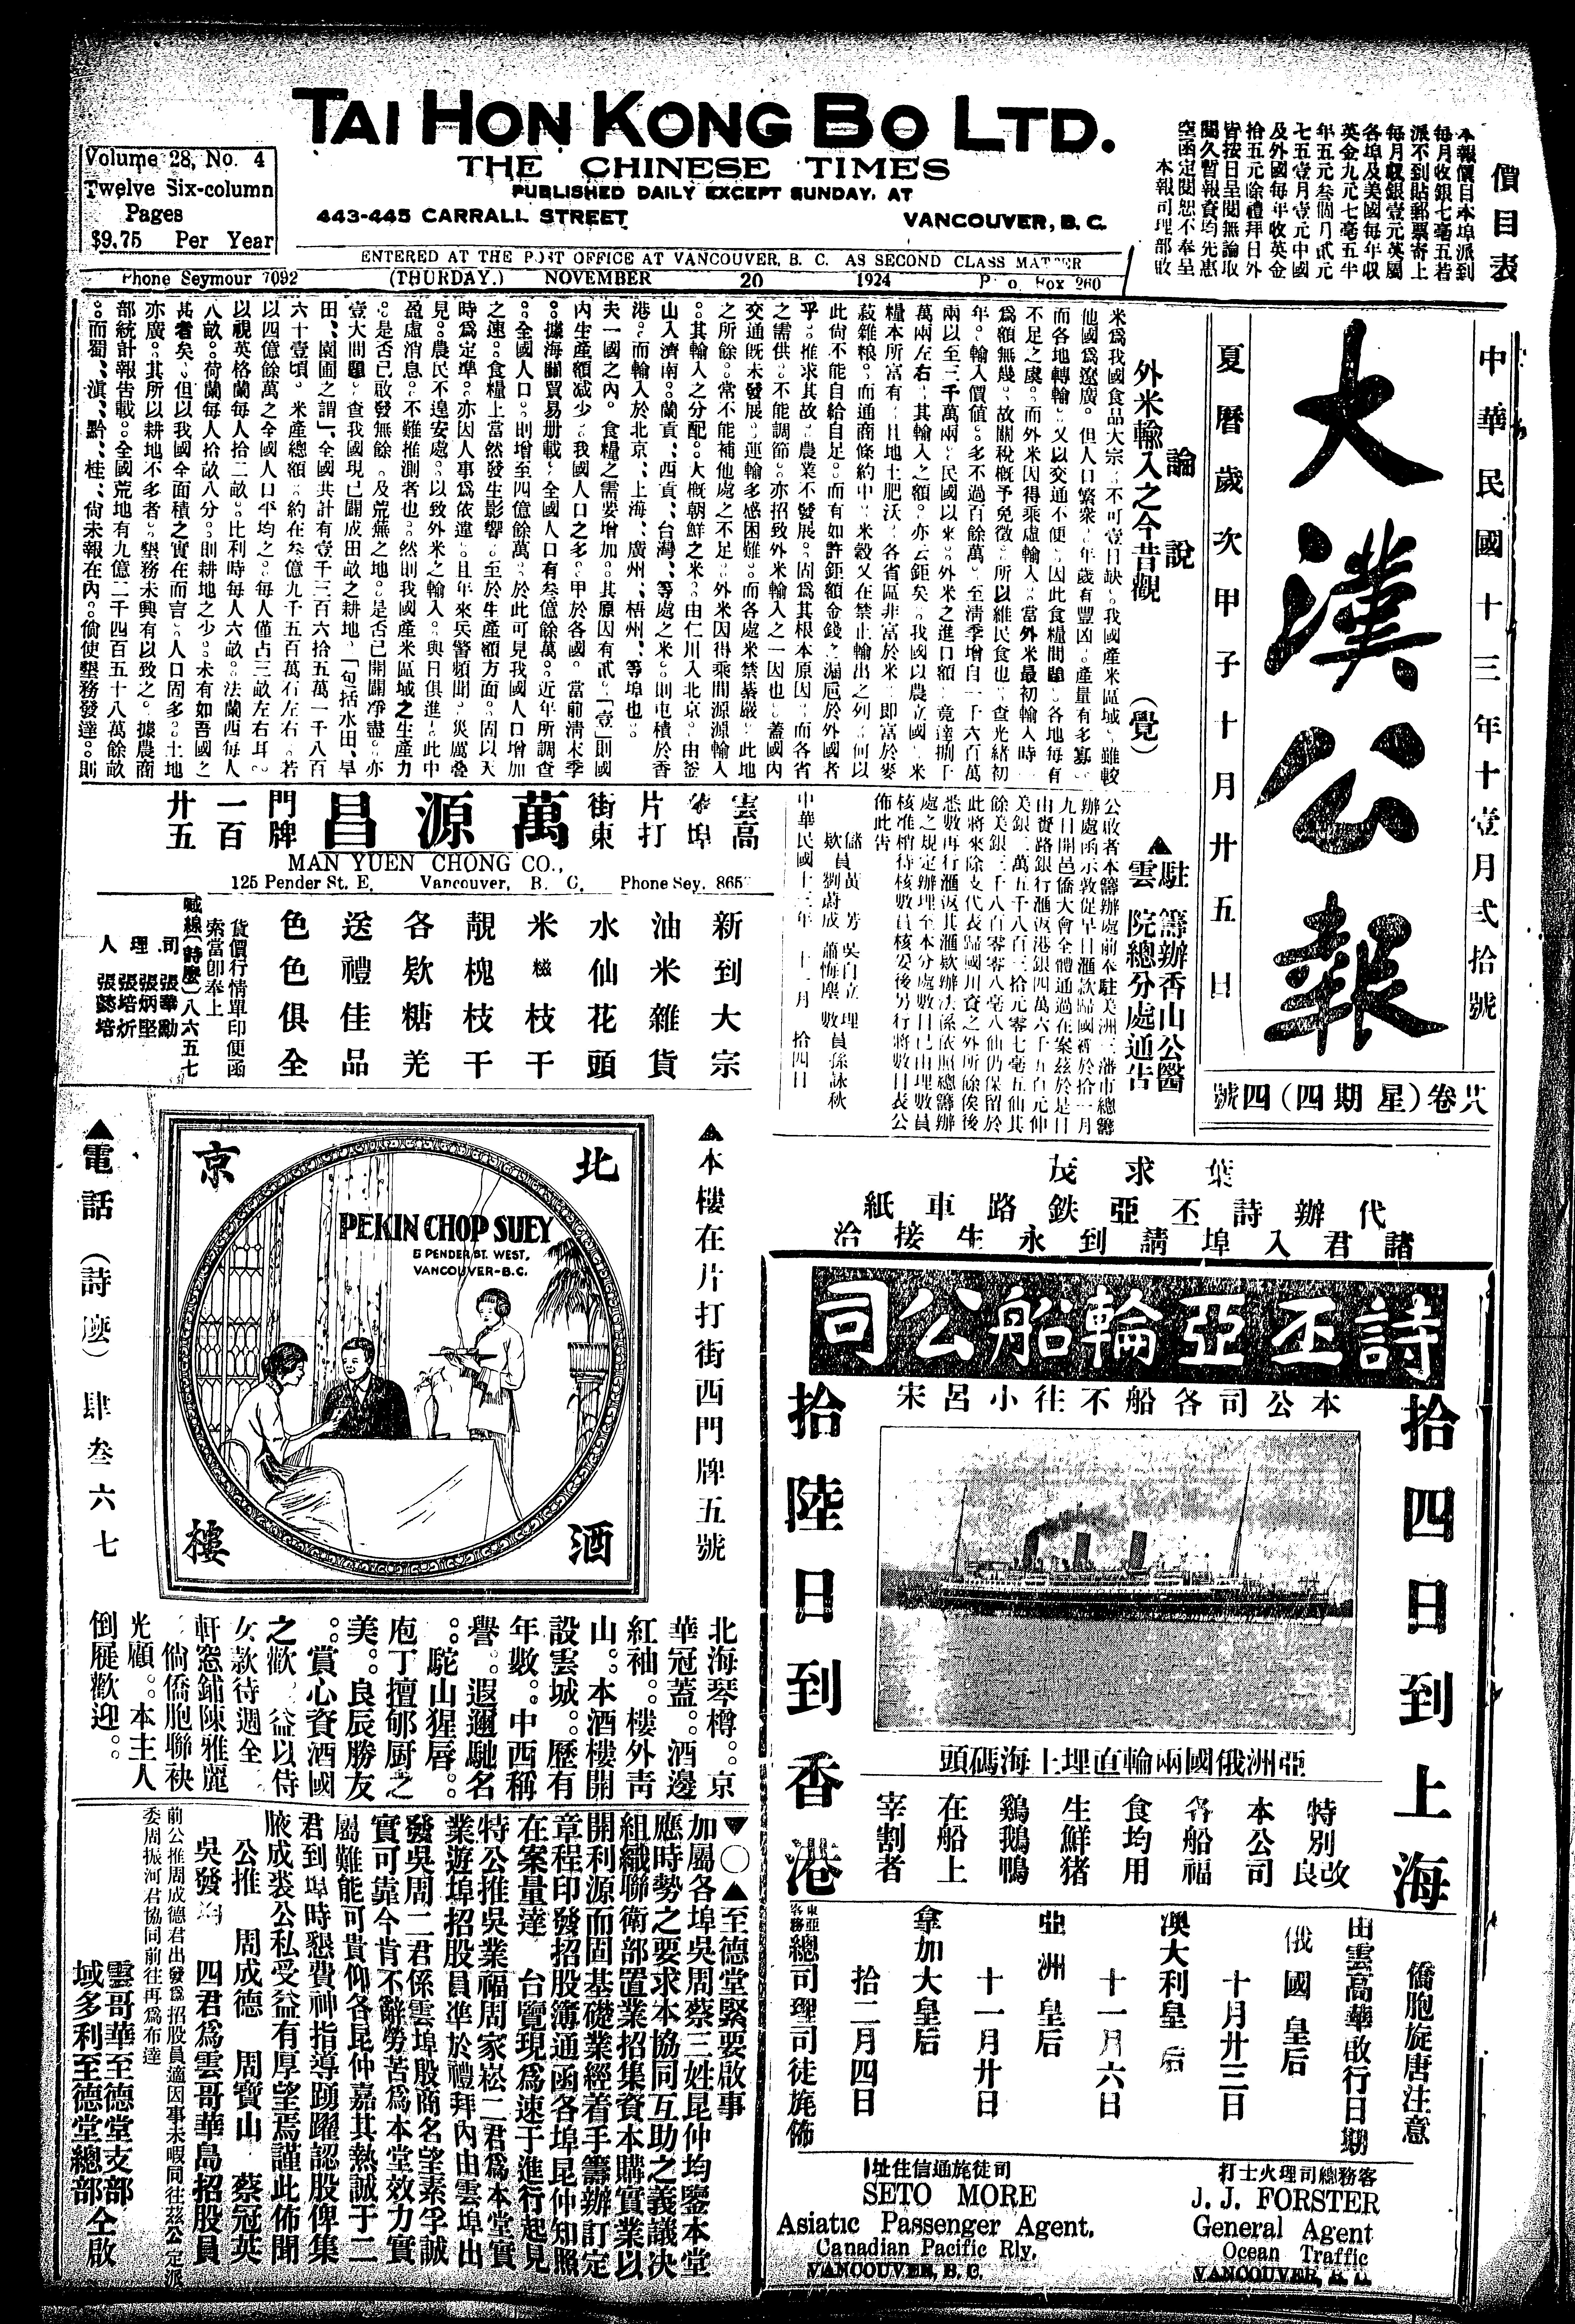 TAI HON KONG BO LTD.
THE CHINESE TIMES
PUBLISHED DAILY EXCEPT SUNDAY, AT
443-445 CARRALL STREET VANCOUVER, B. C.
ENTERED AT THE POST OFFICE AT VANCOUVER, B. C. AS SECOND CLASS MATTER
Volume 28, No. 4
Twelve Six-column
Pages
$9.75 Per Year
Phone Seymour 7092 (THURDAY.) NOVEMBER 20 1924 P. O. Box 260
價目表
本報價目本埠派到
每月收銀七毫五若
派不到貼郵票寄上
每月收銀壹元英國
各埠及美國每年收
英金九元七毫五半
年五元叁個月貳元
七五壹月壹元中國
及外國每年收英金
拾五元除禮拜日外
皆按日呈閱無論取
閱久暫報資均先惠
空函定閱恕不奉呈
本報司理部啟
中華民國十三年十壹月弍拾號
大漢公報
夏曆歲次甲子十月廿五日
廿八卷(星期四)四號
論說
外米輸入之今昔觀 (覺)
米爲我國食品大宗。不可壹日缺。我國產米區域。雖較
他國爲遼廣。但人口繁衆。年歲有豐凶。產量有多寡。
而各地轉輸。又以交通不便。因此食糧問題。各地每有
不足之虞。而外米因得乘虛輸入。當外米最初輸入時。
爲額無幾。故關稅概予免徵。所以維民食也。查光緒初
年。輸入價值。多不過百餘萬。至淸季增自一千六百萬
兩以至三千萬兩。民國以來。外米之進口額。竟達捌千
萬兩左右。其輸入之額。亦云鉅矣。我國以農立國。米
糧本所富有。且地土肥沃。各省區非富於米。即富於麥
菽雜粮。而通商條約中。米穀又在禁止輸出之列。何以
此尙不能自給自足。而有如許鉅額金錢之漏巵於外國者
乎。推求其故。農業不發展。固爲其根本原因。而各省
之需供。不能調節。亦招致外米輸入之一因也。蓋國內
交通旣未發展。運輸多感困難。而各處米禁綦嚴。此地
之所餘。常不能補他處之不足。外米因得乘間源源輸入
。其輸入之分配。大概朝鮮之米。由仁川入北京。由釜
山入濟南。蘭貢、西貢、台灣、等處之米。則屯積於香
港。而輸入於北京、上海、廣州、梧州、等埠也。
夫一國之內。食糧之需要增加。其原因有貳。「壹」則國
內生產額減少。我國人口之多。甲於各國。當前淸末季
。據海關貿易册載。全國人口有叁億餘萬。近年所調查
。全國人口。則增至四億餘萬。於此可見我國人口增加
之速。食糧上當然發生影響。至於生產額方面。固以天
時爲定準。亦因人事爲依違。且年來兵警頻聞。災厲叠
見。農民不遑安處。以致外米之輸入。與日俱進。此中
盈虛消息。不難推測者也。然則我國產米區域之生產力
。是否已啟發無餘。及荒蕪之地。是否已開闢淨盡。亦
壹大問題。查我國現已闢成田畝之耕地。「包括水田、旱
田、園圃之謂」、全國共計有壹千三百六拾五萬一千八百
六十壹頃。米產總額。約在叁億九千五百萬石左右。若
以四億餘萬之全國人口平均之。每人僅占三畝左右耳。
以視英格蘭每人拾二畝。比利時每人六畝。法蘭西每人
八畝。荷蘭每人拾畝八分。則耕地之少。未有如吾國之
甚者矣。但以我國全面積之實在而言。人口固多。土地
亦廣。其所以耕地不多者。墾務未興有以致之。據農商
部統計報告載。全國荒地有九億二千四百五十八萬餘畝
。而蜀、滇、黔、桂、尙未報在內。倘使墾務發達。則
▲駐雲籌辦香山公醫院總分處通告
公啟者本籌辦處前奉駐美洲三藩市總籌
辦處函示敦促早日滙款歸國經於拾一月
九日開邑僑大會全體通過在案茲於是日
由實路銀行滙返港銀四萬六千五百元伸
美銀二萬五千八百三拾元零七毫五仙其
餘美銀三千八百零零八毫八仙仍保留於
此將來除支代表歸國川資之外所餘俟後
悉數再行滙返其滙欵辦法係依照總籌辦
處之規定辦理至本分處數目已由理數員
核准稽待核數員核妥後另行將數目表公
佈此告
儲欵員 黃 芳 劉蔚成 吳自立 蕭悔塵 理數員 孫詠秋
中華民國十三年 十一月 拾四日
雲高華埠片打街東萬源昌門牌一百廿五
MAN YUEN CHONG CO.,
125 Pender St. E, Vancouver, B. C. Phone Sey. 865
新到大宗
油米雜貨
水仙花頭
米糍枝干
靚槐枝干
各欵糖羌
送禮佳品
色色俱全
貨價行情單印便函
索當卽奉上
喊線(詩麽)八六五七
司理人 張華勳 張炳堅 張培炘 張懿培
▲本樓在片打街西門牌五號
北京酒樓
PEKIN CHOP SUEY
5 PENDER ST. WEST.
VANCOUVER-B.C.
▲電話(詩麽)肆叁六七
北海琴樽。京
華冠蓋。酒邊
紅袖。樓外靑
山。本酒樓開
設雲城。歷有
年數。中西稱
譽。遐邇馳名
。駝山猩唇。
庖丁擅郇厨之
美。良辰勝友
。賞心資酒國
之歡。益以侍
女欵待週全。
軒窓鋪陳雅麗
。倘僑胞聯袂
光顧。本主人
倒屣歡迎。
▼○▲至德堂緊要啟事
加屬各埠吳周蔡三姓昆仲均鑒本堂
應時勢之要求本協同互助之義議决
組織聯衛部置業招集資本購實業以
開利源而固基礎業經着手籌辦訂定
章程印發招股簿通函各埠昆仲知照
在案量達 台覽現爲速于進行起見
特公推吳業福周家崧二君爲本堂實
業遊埠招股員準於禮拜內由雲埠出
發吳周二君係雲埠殷商名望素孚誠
實可靠今肯不辭勞苦爲本堂效力實
屬難能可貴仰各昆仲嘉其熱誠于二
君到埠時懇費神指導踴躍認股俾集
腋成裘公私受益有厚望焉謹此佈聞
公推 周成德 周寶山 蔡冠英
吳發海 四君爲雲哥華島招股員
前公推周成德君出發爲招股員適因事未暇同往茲公定派
委周振河君協同前往再爲布達
雲哥華至德堂支部
域多利至德堂總部 仝啟
葉求茂
代辦詩丕亞鉄路車紙
諸君入埠請到永生接洽
詩丕亞輪船公司
本公司各船不往小呂宋
拾四日到上海
拾陸日到香港
亞洲俄國兩輪直埋上海碼頭
特別改良
本公司
各船福
食均用
生鮮猪
鷄鵝鴨
在船上
宰割者
僑胞旋唐注意
由雲高華啟行日期
俄國皇后
十月廿三日
澳大利皇后
十一月六日
亞洲皇后
十一月廿日
拿加大皇后
拾二月四日
東亞客務總司理司徒旄佈
司徒旄通信住址
SETO MORE
Asiatic Passenger Agent.
Canadian Pacific Rly.
VANCOUVER, B. C.
客務總司理火士打
J. J. FORSTER
General Agent
Ocean Traffic
VANCOUVER, B. C.